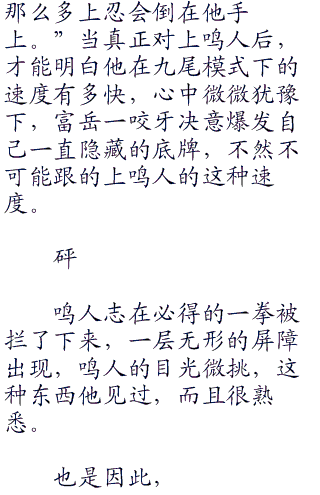 那么多上忍会倒在他手
上。”当真正对上鸣人后，
才能明白他在九尾模式下的
速度有多快，心中微微犹豫
下，富岳一咬牙决意爆发自
己一直隐藏的底牌，不然不
可能跟的上鸣人的这种速
度。
砰
鸣人志在必得的一拳被
拦了下来，一层无形的屏障
出现，鸣人的目光微挑，这
种东西他见过，而且很熟
悉。
也是因此，